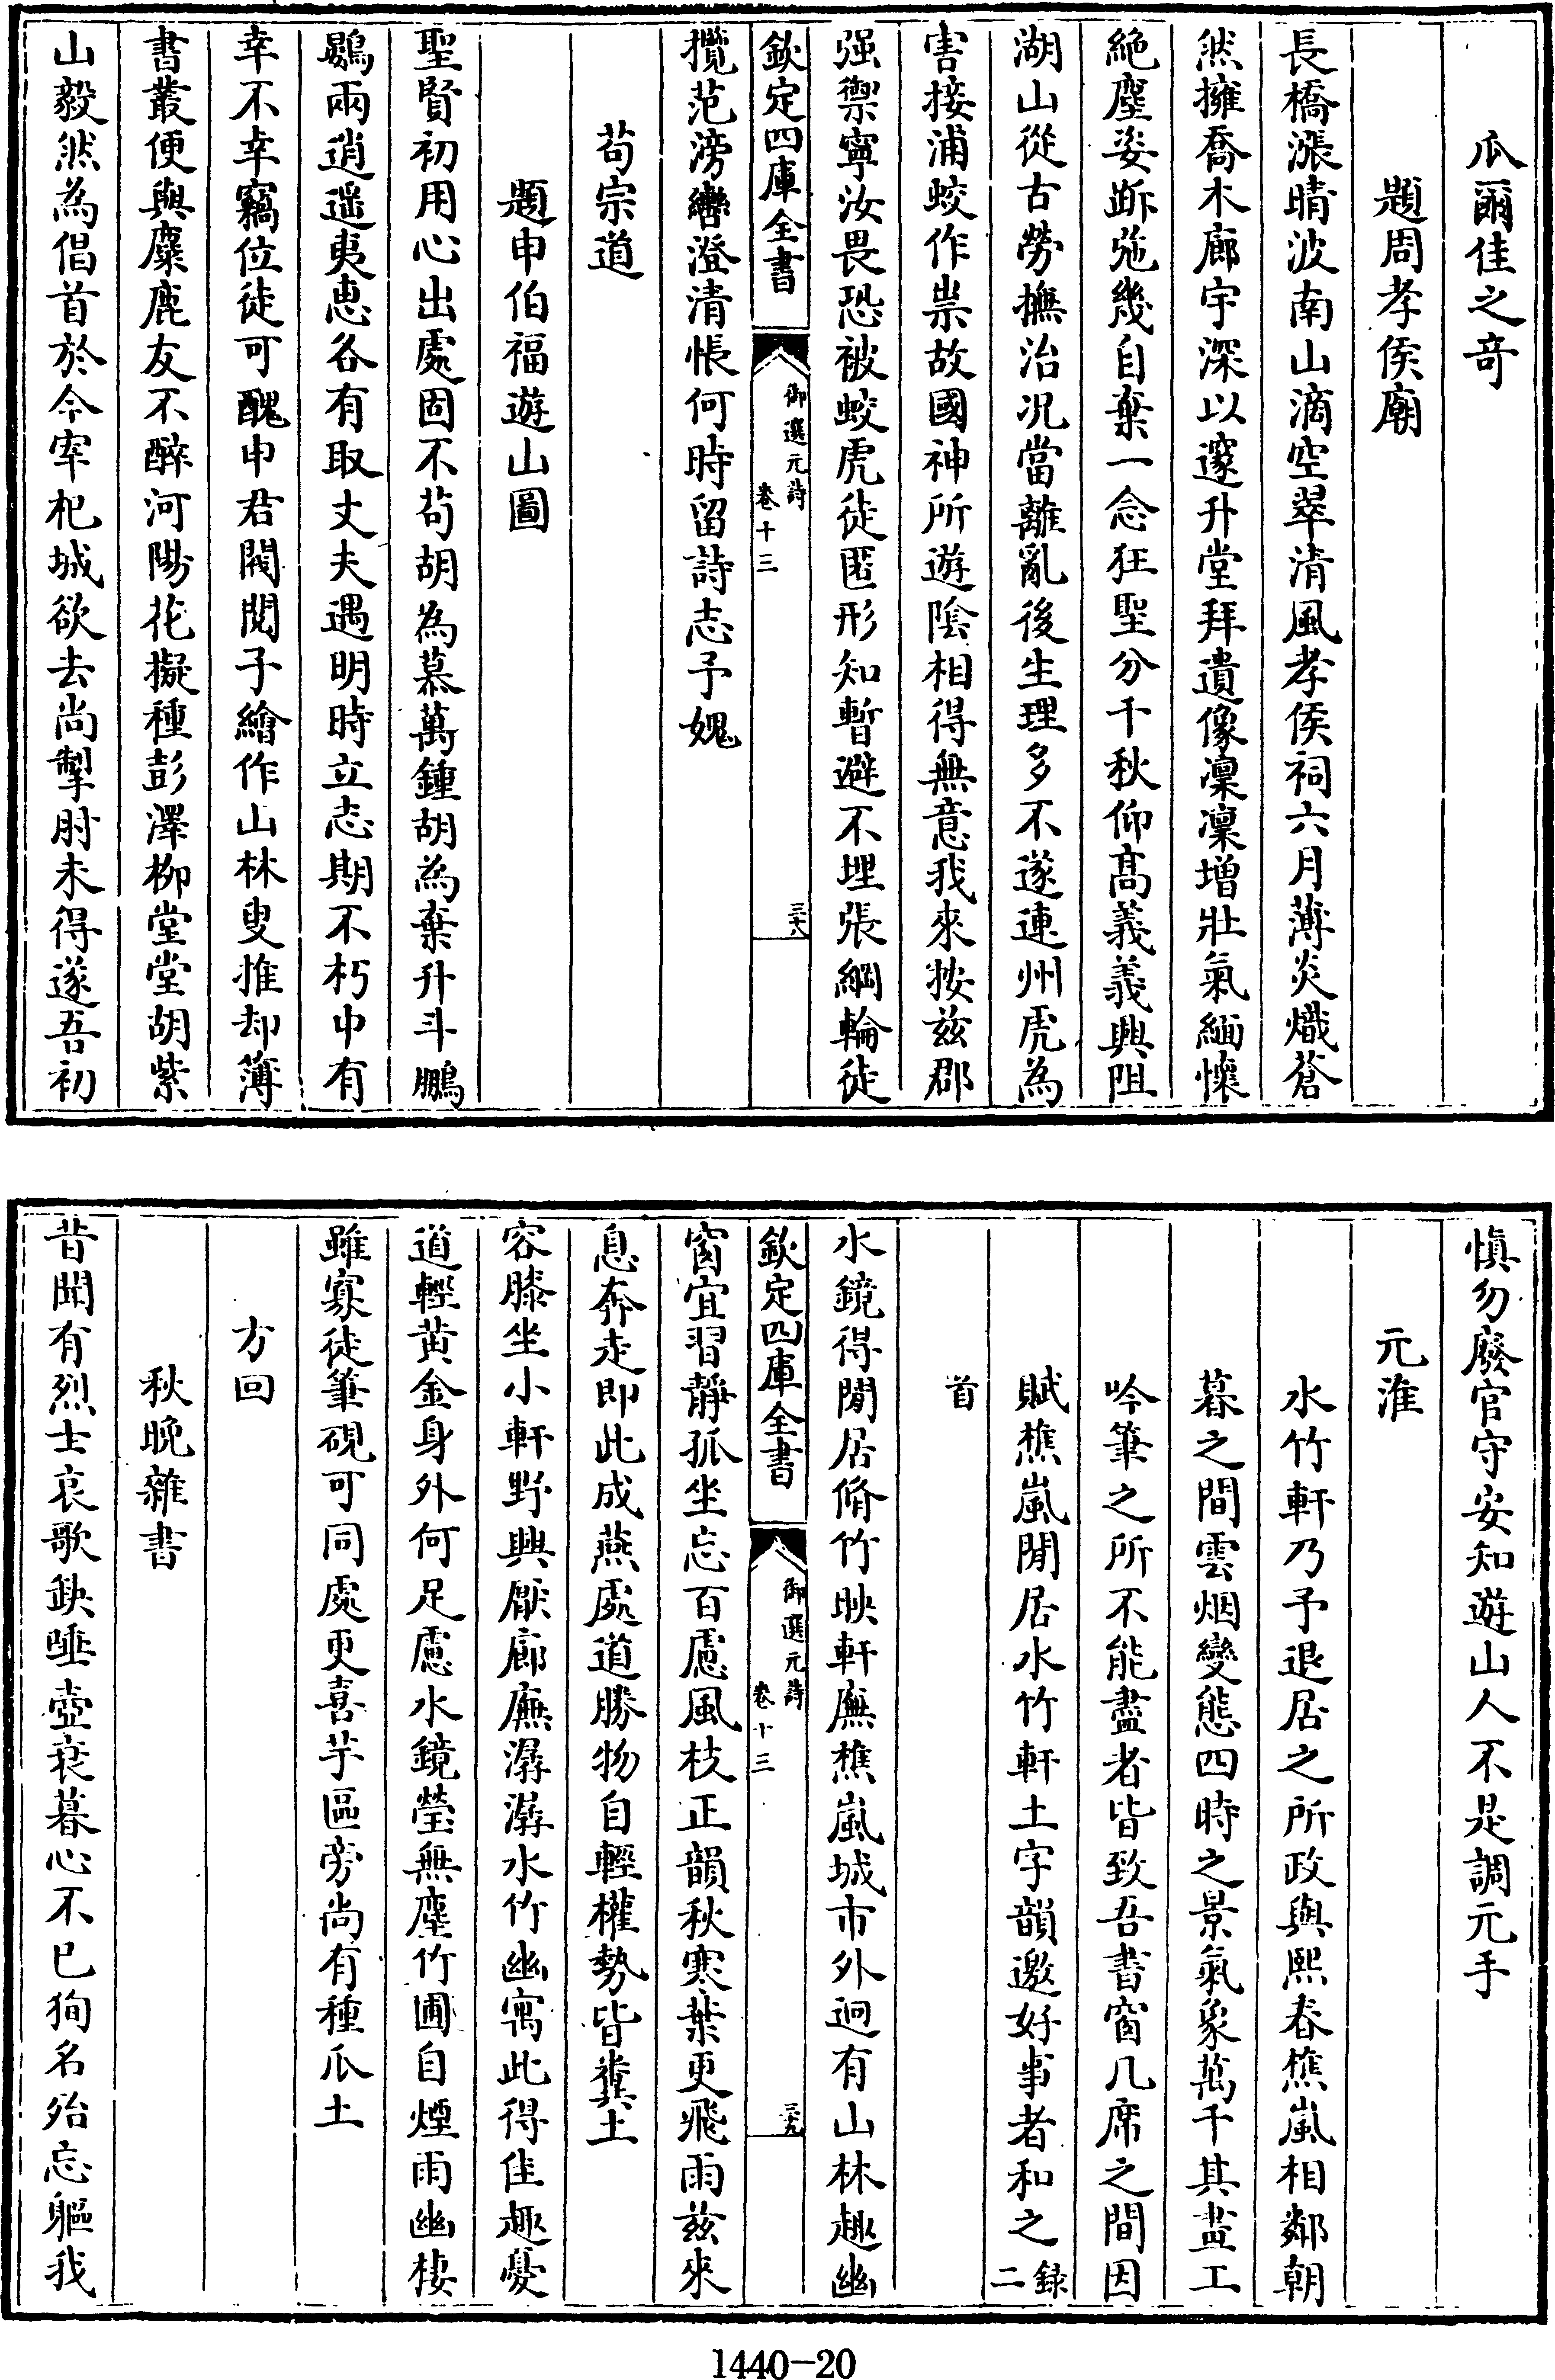 瓜爾佳之奇
題周孝侯廟
長橋漲晴波南山滴空翠清風孝侯祠六月薄炎熾蒼
然擁喬木廊宇深以邃升堂拜遺像凜凜增壯氣緬懷
絶塵姿跅弛幾自棄一念狂聖分千秋仰髙義義興阻
湖山從古勞撫治况當離亂後生理多不遂連州虎為
害接浦蛟作祟故國神所遊陰相得無意我來按兹郡
强禦寧汝畏恐被蛟虎徒匿形知暫避不埋張綱輪徒
欽定四庫全書
御選元詩
卷十三
三十八
攬范滂轡澄清悵何時留詩志予媿
苟宗道
題申伯福遊山圖
聖賢初用心出處固不苟胡為慕萬鍾胡為棄升斗鵬
鷃兩逍遥夷恵各有取丈夫遇明時立志期不朽中有
幸不幸竊位徒可醜申君閥閱子繪作山林叟推却簿
書叢便與麋鹿友不醉河陽花擬種彭澤柳堂堂胡紫
山毅然為倡首於今宰杞城欲去尚掣肘未得遂吾初
慎勿廢官守安知遊山人不是調元手
元淮
水竹軒乃予退居之所政與熙春樵嵐相鄰朝
暮之間雲烟變態四時之景氣象萬千其畫工
吟筆之所不能盡者皆致吾書窗几席之間因
賦樵嵐閒居水竹軒土字韻邀好事者和之錄二
首
水鏡得閒居脩竹映軒廡樵嵐城市外迥有山林趣幽
欽定四庫全書
御選元詩
卷十三
三十九
窗宜習静孤坐忘百慮風枝正韻秋寒葉更飛雨兹來
息奔走即此成燕處道勝物自輕權勢皆糞土
容膝坐小軒野興厭廊廡潺潺水竹幽寓此得佳趣憂
道輕黄金身外何足慮水鏡瑩無塵竹圃自煙雨幽棲
雖寡徒筆硯可同處更喜芋區旁尚有種瓜土
方回
秋晚雜書
昔聞有烈士哀歌缺唾壺衰暮心不已狥名殆忘軀我
1440-20